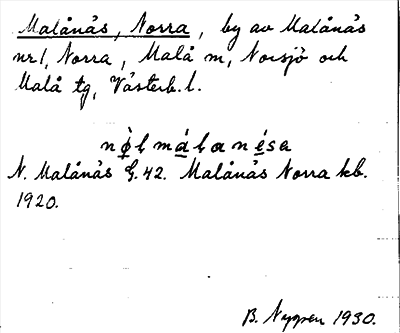 Malånäs, Norra, by av Malånäs
nr 1, Norra, Malå m, Norsjö och
Malå tg, Västerb. l.
N. Malånäs G. 42. Malånäs Norra kb.
1920.
B. Nyman 1930.